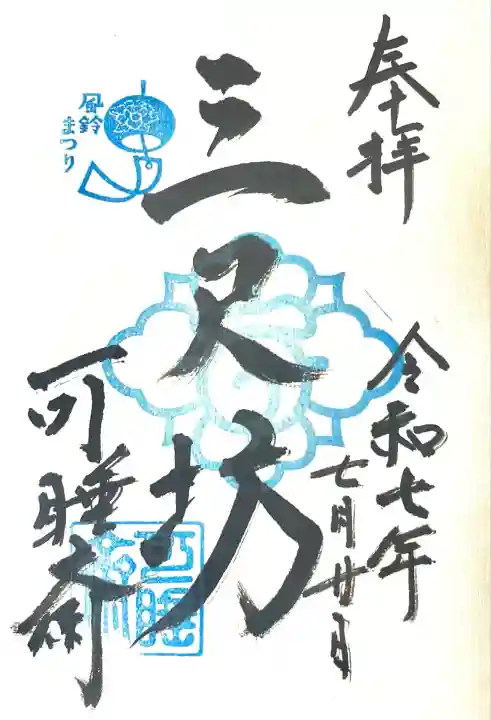 奉拝
令和七年
七月廿日
三尺坊
風鈴
まつり
可睡斎
可睡斎